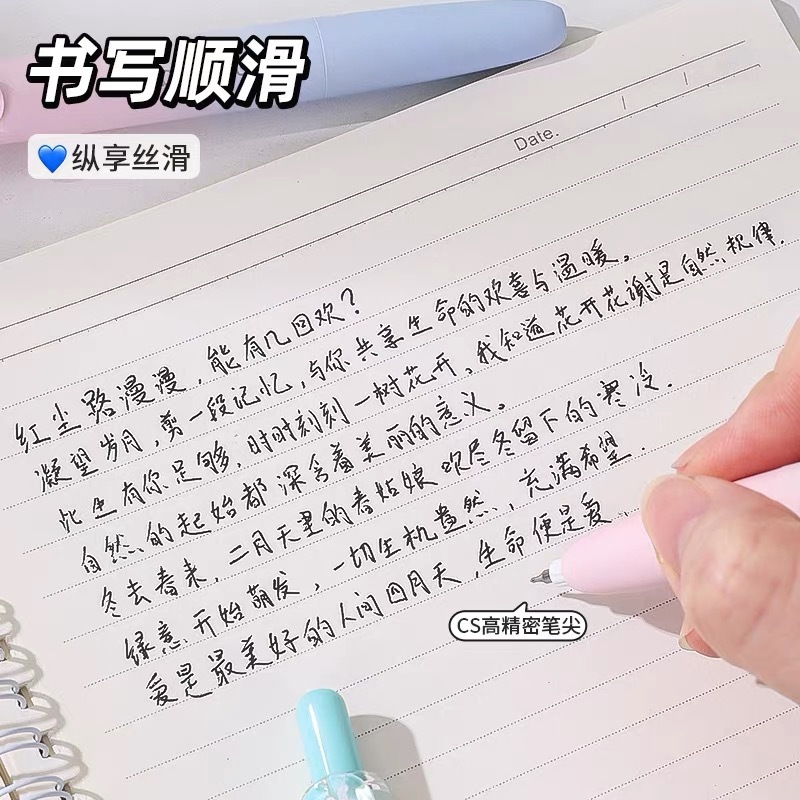 书写顺滑
纵享丝滑
Date.
红尘路漫漫，能有几回欢？
凝望岁月，剪一段记忆，与你共享生命的欢喜与温暖。
此生有你足够，时时刻刻一树花开。我知道花开花谢是自然规律.
自然的起始都深含着美丽的意义。
冬去春来，二月天里的春姑娘吹尽冬留下的寒冷.
绿意开始萌发，一切生机盎然，充满希望.
爱是最美好的人间四月天，生命便是爱、
CS高精密笔尖